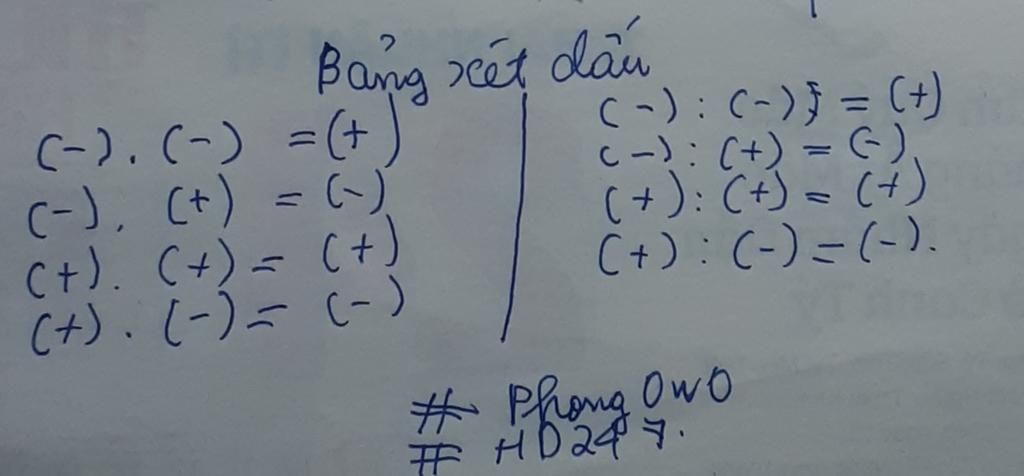 Bảng xét dấu
(-). (-) = (+)
(-). (+) = (-)
(+). (+) = (+)
(+). (-) = (-)
(-) : (-) = (+)
(-) : (+) = (-)
(+) : (+) = (+)
(+) : (-) = (-).
# Phong OwO
# HD247.